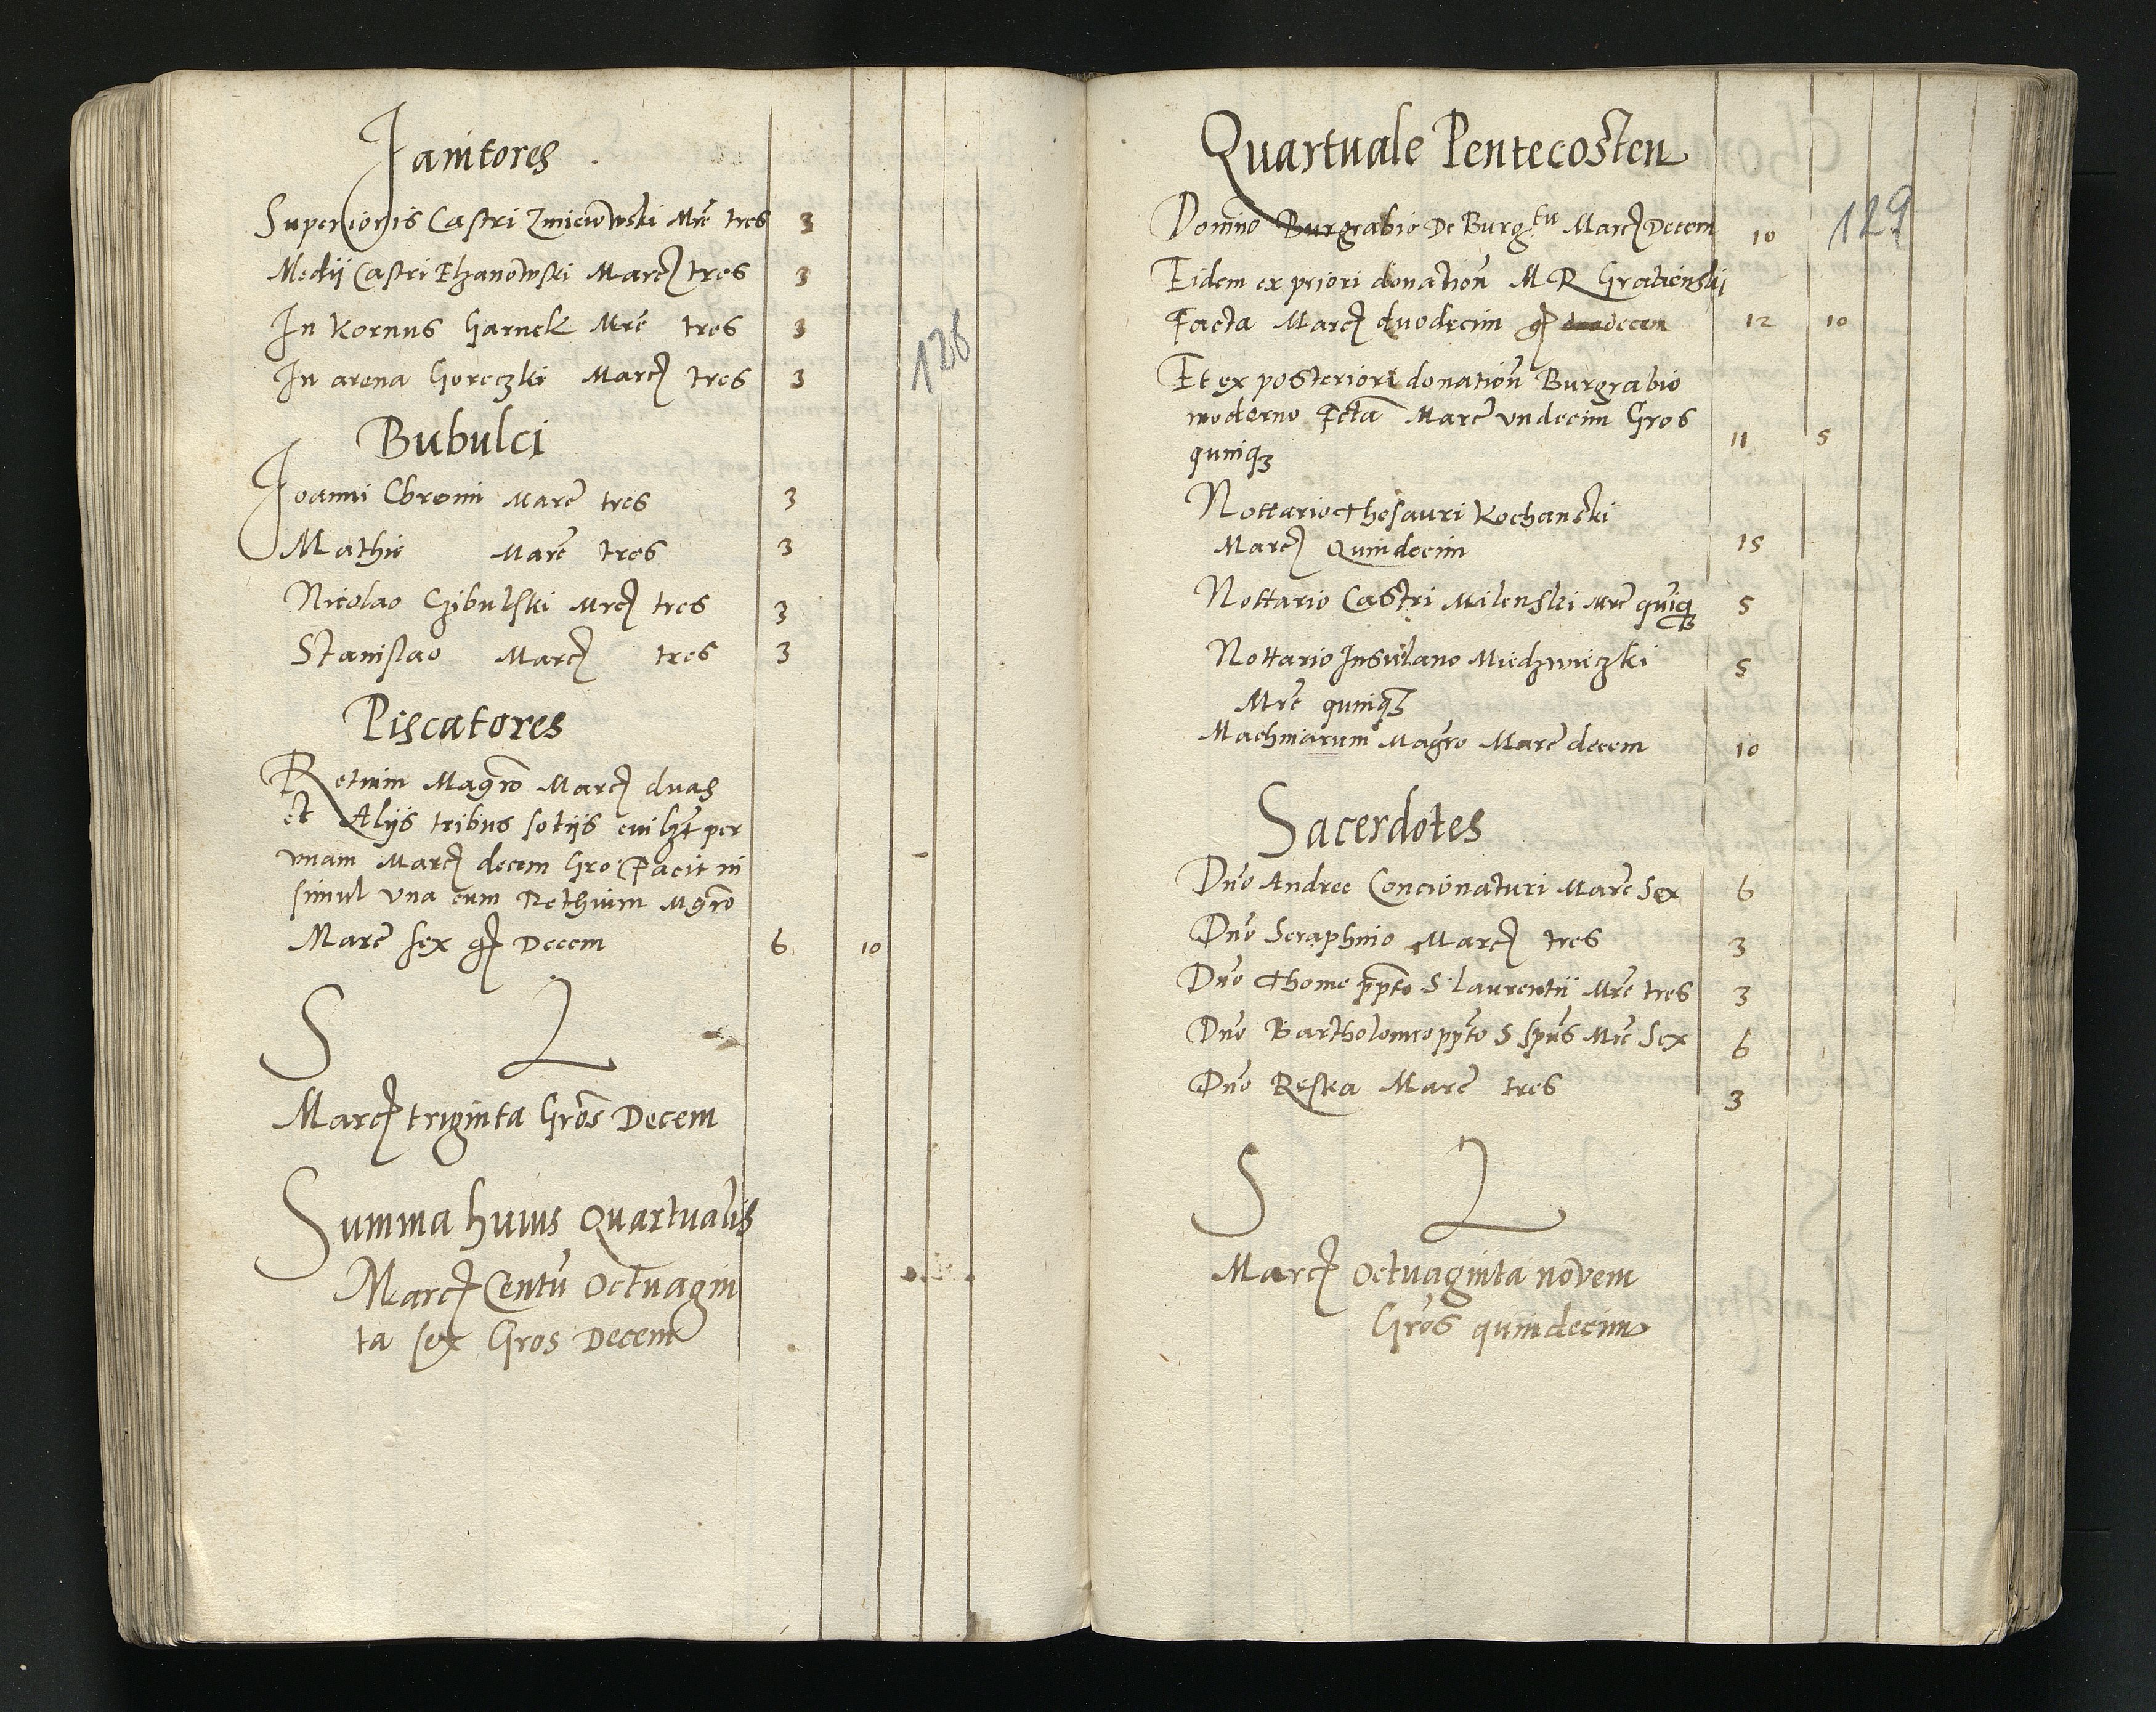 Janitores
Superioris Castri Zmiewowski Mrc̃ tres 3
Medij Castri Elzanowski Marc tres 3
In Kornus Garnek Mrc̃ tres 3
In arena Goreczki Marc tres 3
126
Bubulci
Joanni Chromi Marc̃ tres 3
Mathie Marc̃ tres 3
Nicolao Czibulski Mrc tres 3
Stanislao Marc tres 3
Piscatores
Retium Magrõ Marc duas
et Alijs tribus sotijs cuilzt per
vnam Marc decem Gro Facit in
simul vna cum Rethium Mgrõ
Marc̃ sex gr Decem 6 10
S L
Marc triginta Grõs Decem
Summa huius Quartualis
Marc Centũ Octuagin
ta sex Gros Decem
Quartuale Pentecosten
129
Domino Burgrabio De Burgtu Marc Decem 10
Eidem ex priori donatioñ M R
Facta Marc duodecim gr decem 12 10
Et ex posteriori donatioñ Burgrabio
moderno Fcta Marc̃ vndecim Gros 11 5
quinqz
Nottario Thesauri Kochanski
Marc Quindecim 15
Nottario Castri Milenski Mrc̃ quiqz 5
Nottario Insulano Miedzwieczki 5
Mrc̃ quinqz
Machinarum Magro Marc̃ decem 10
Sacerdotes
Dño Andree Concionaturi Marc̃ Sex 6
Dño Seraphino Marc tres 3
Dño Thome pp̃to S Laurentii Mrc̃ tres 3
Dño Bartholomeo pp̃to S Spũs Mrc̃ Sex 6
Dño Reska Marc̃ tres 3
S L
Marc Octuaginta novem
Grõs quindecim